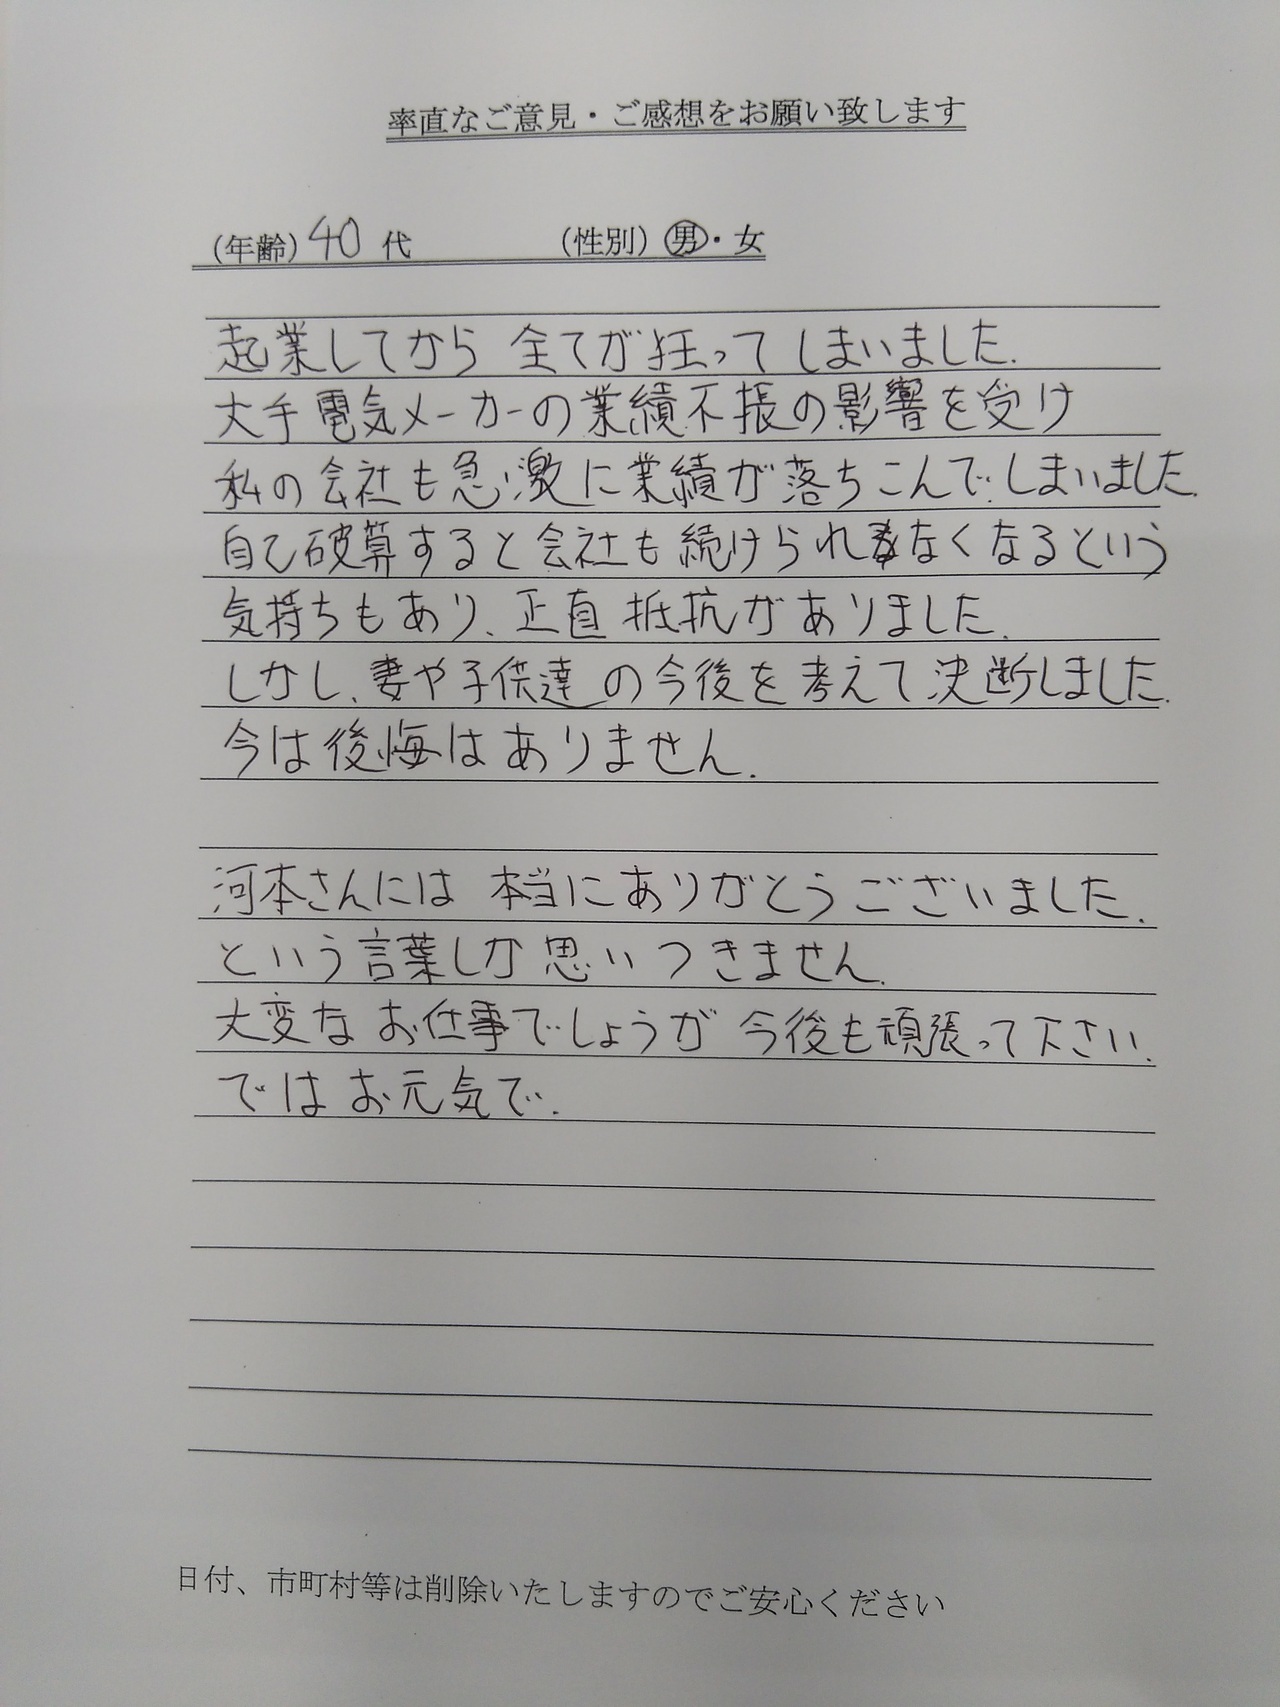 率直なご意見・ご感想をお願い致します
(年齢) 40 代 (性別) 男・女
起業してから 全てが狂って しまいました.
大手電気メーカーの業績不振の影響を受け
私の会社も急激に業績が落ちこんでしまいました.
自己破算すると会社も続けられなくなるという
気持ちもあり、正直 抵抗がありました.
しかし、妻や子供達の今後を考えて決断しました.
今は後悔はありません.
河本さんには 本当にありがとうございました.
という言葉しか思いつきません.
大変な お仕事でしょうが 今後も頑張って下さい.
ではお元気で.
日付、市町村等は削除いたしますのでご安心ください